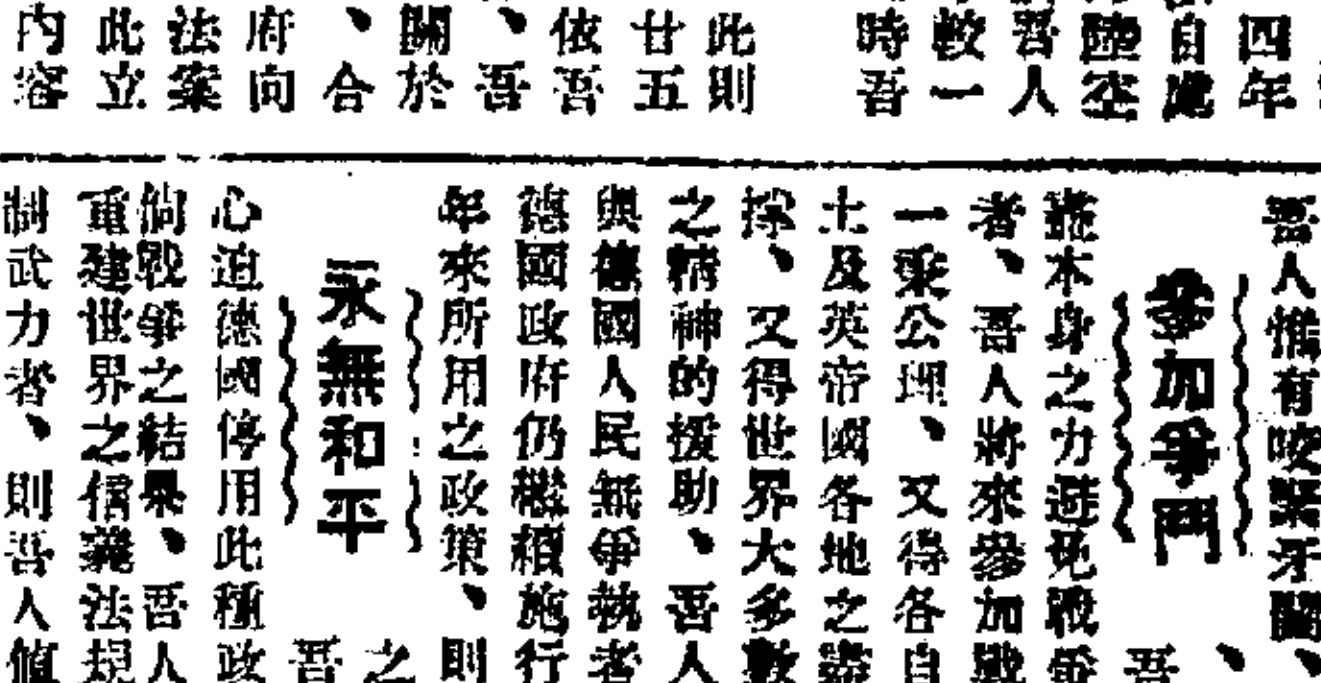 四年
自處
陸空
吾人
較一
時吾
此則
廿五
依吾
、吾
關於
、合
府向
法案
此立
內容
吾人惟有咬緊牙關、
參加爭鬥
、
吾
盡本身之力避免戰爭
者、吾人將來參加戰
一乘公理、又得各自
土及英帝國各地之
採、又得世界大多數
之精神的援助、吾人
與德國人民無爭執者
德國政府仍繼續施行
年來所用之政策、則
之
永無和平
吾
心迫德國停用此種政
倘戰爭之結果、吾人
重建世界之信義法規
制武力者、則吾人